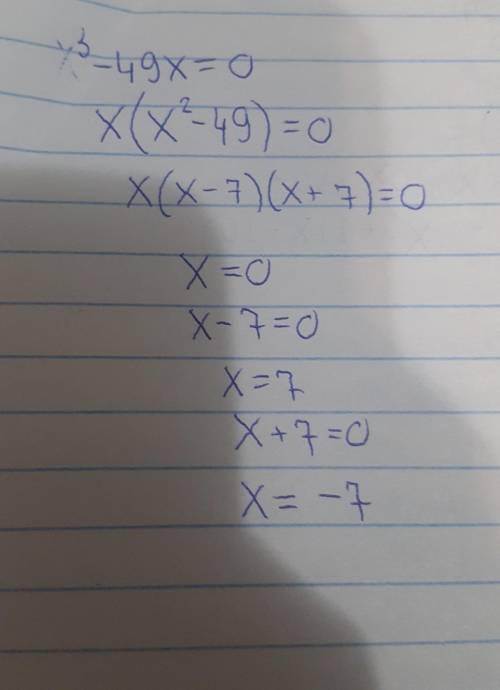 x³-49x=0
x(x²-49)=0
x(x-7)(x+7)=0
x=0
x-7=0
x=7
x+7=0
x=-7